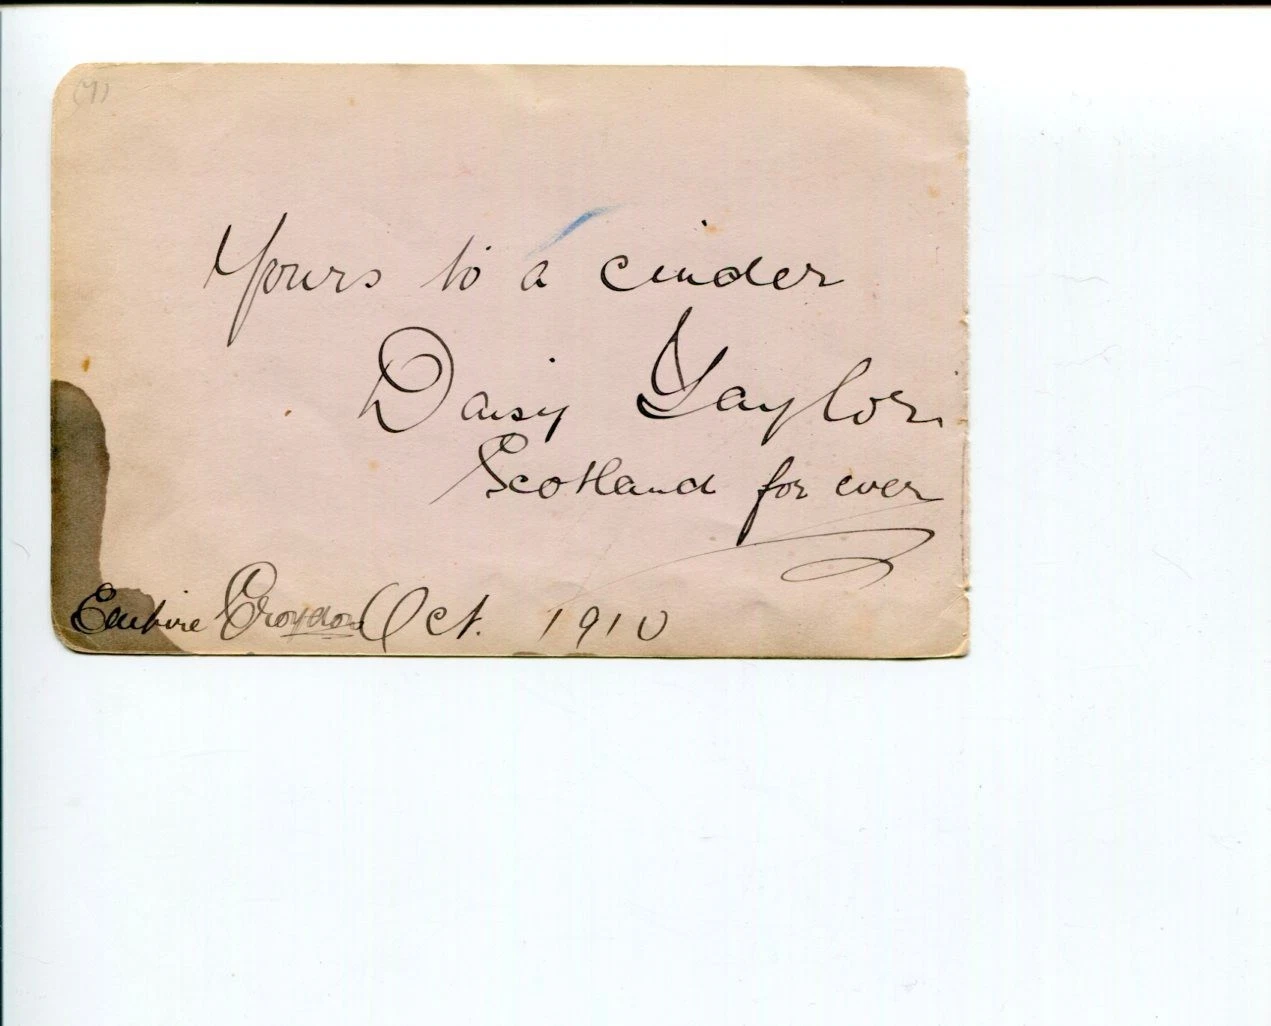 (7)
Yours to a cinder
Daisy Taylor
Scotland for ever
Empire Croydon Oct. 1910